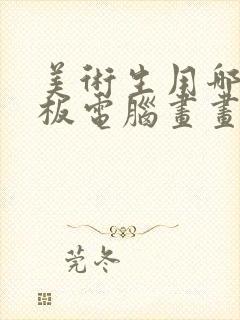 美術生用哪
板電腦畫畫
莞冬